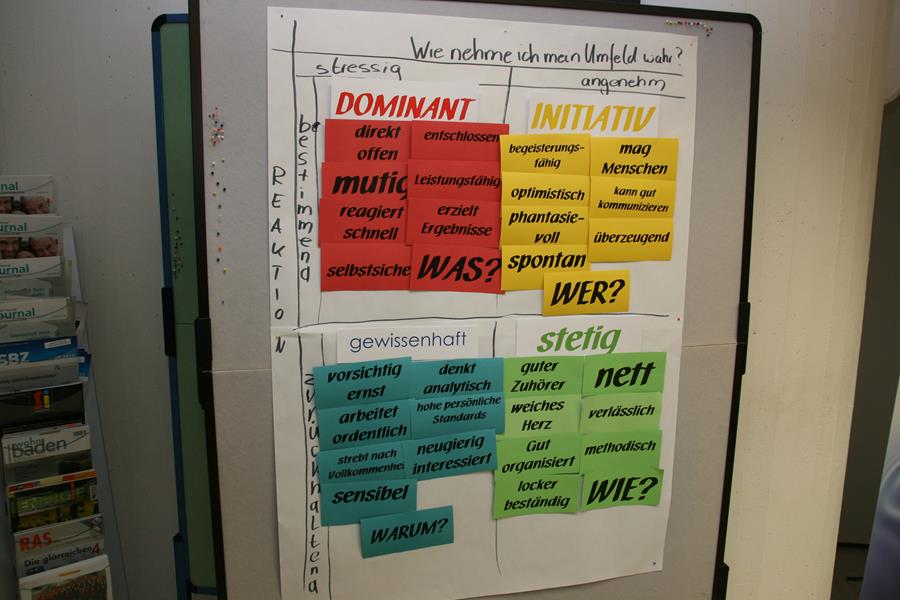 Wie nehme ich mein Umfeld wahr?
stressig
angenehm
REAUTION
bestimmend
zurückhaltend
DOMINANT
direkt
offen
entschlossen
mutig
Leistungsfähig
reagiert
schnell
erzielt
Ergebnisse
selbstsiche
WAS?
INITIATIV
begeisterungs-
fähig
mag
Menschen
optimistisch
kann gut
kommunizieren
phantasie-
voll
überzeugend
spontan
WER?
gewissenhaft
vorsichtig
ernst
denkt
analytisch
arbeitet
ordentlich
hohe persönliche
Standards
strebt nach
Vollkommenhei
neugierig
interessiert
sensibel
WARUM?
stetig
guter
Zuhörer
nett
weiches
Herz
verlässlich
Gut
organisiert
methodisch
locker
beständig
WIE?
rnal
Journal
ournal
ournal
SBZ
wohn
baden
ENERGIE
RAS
Die glorreichen 4